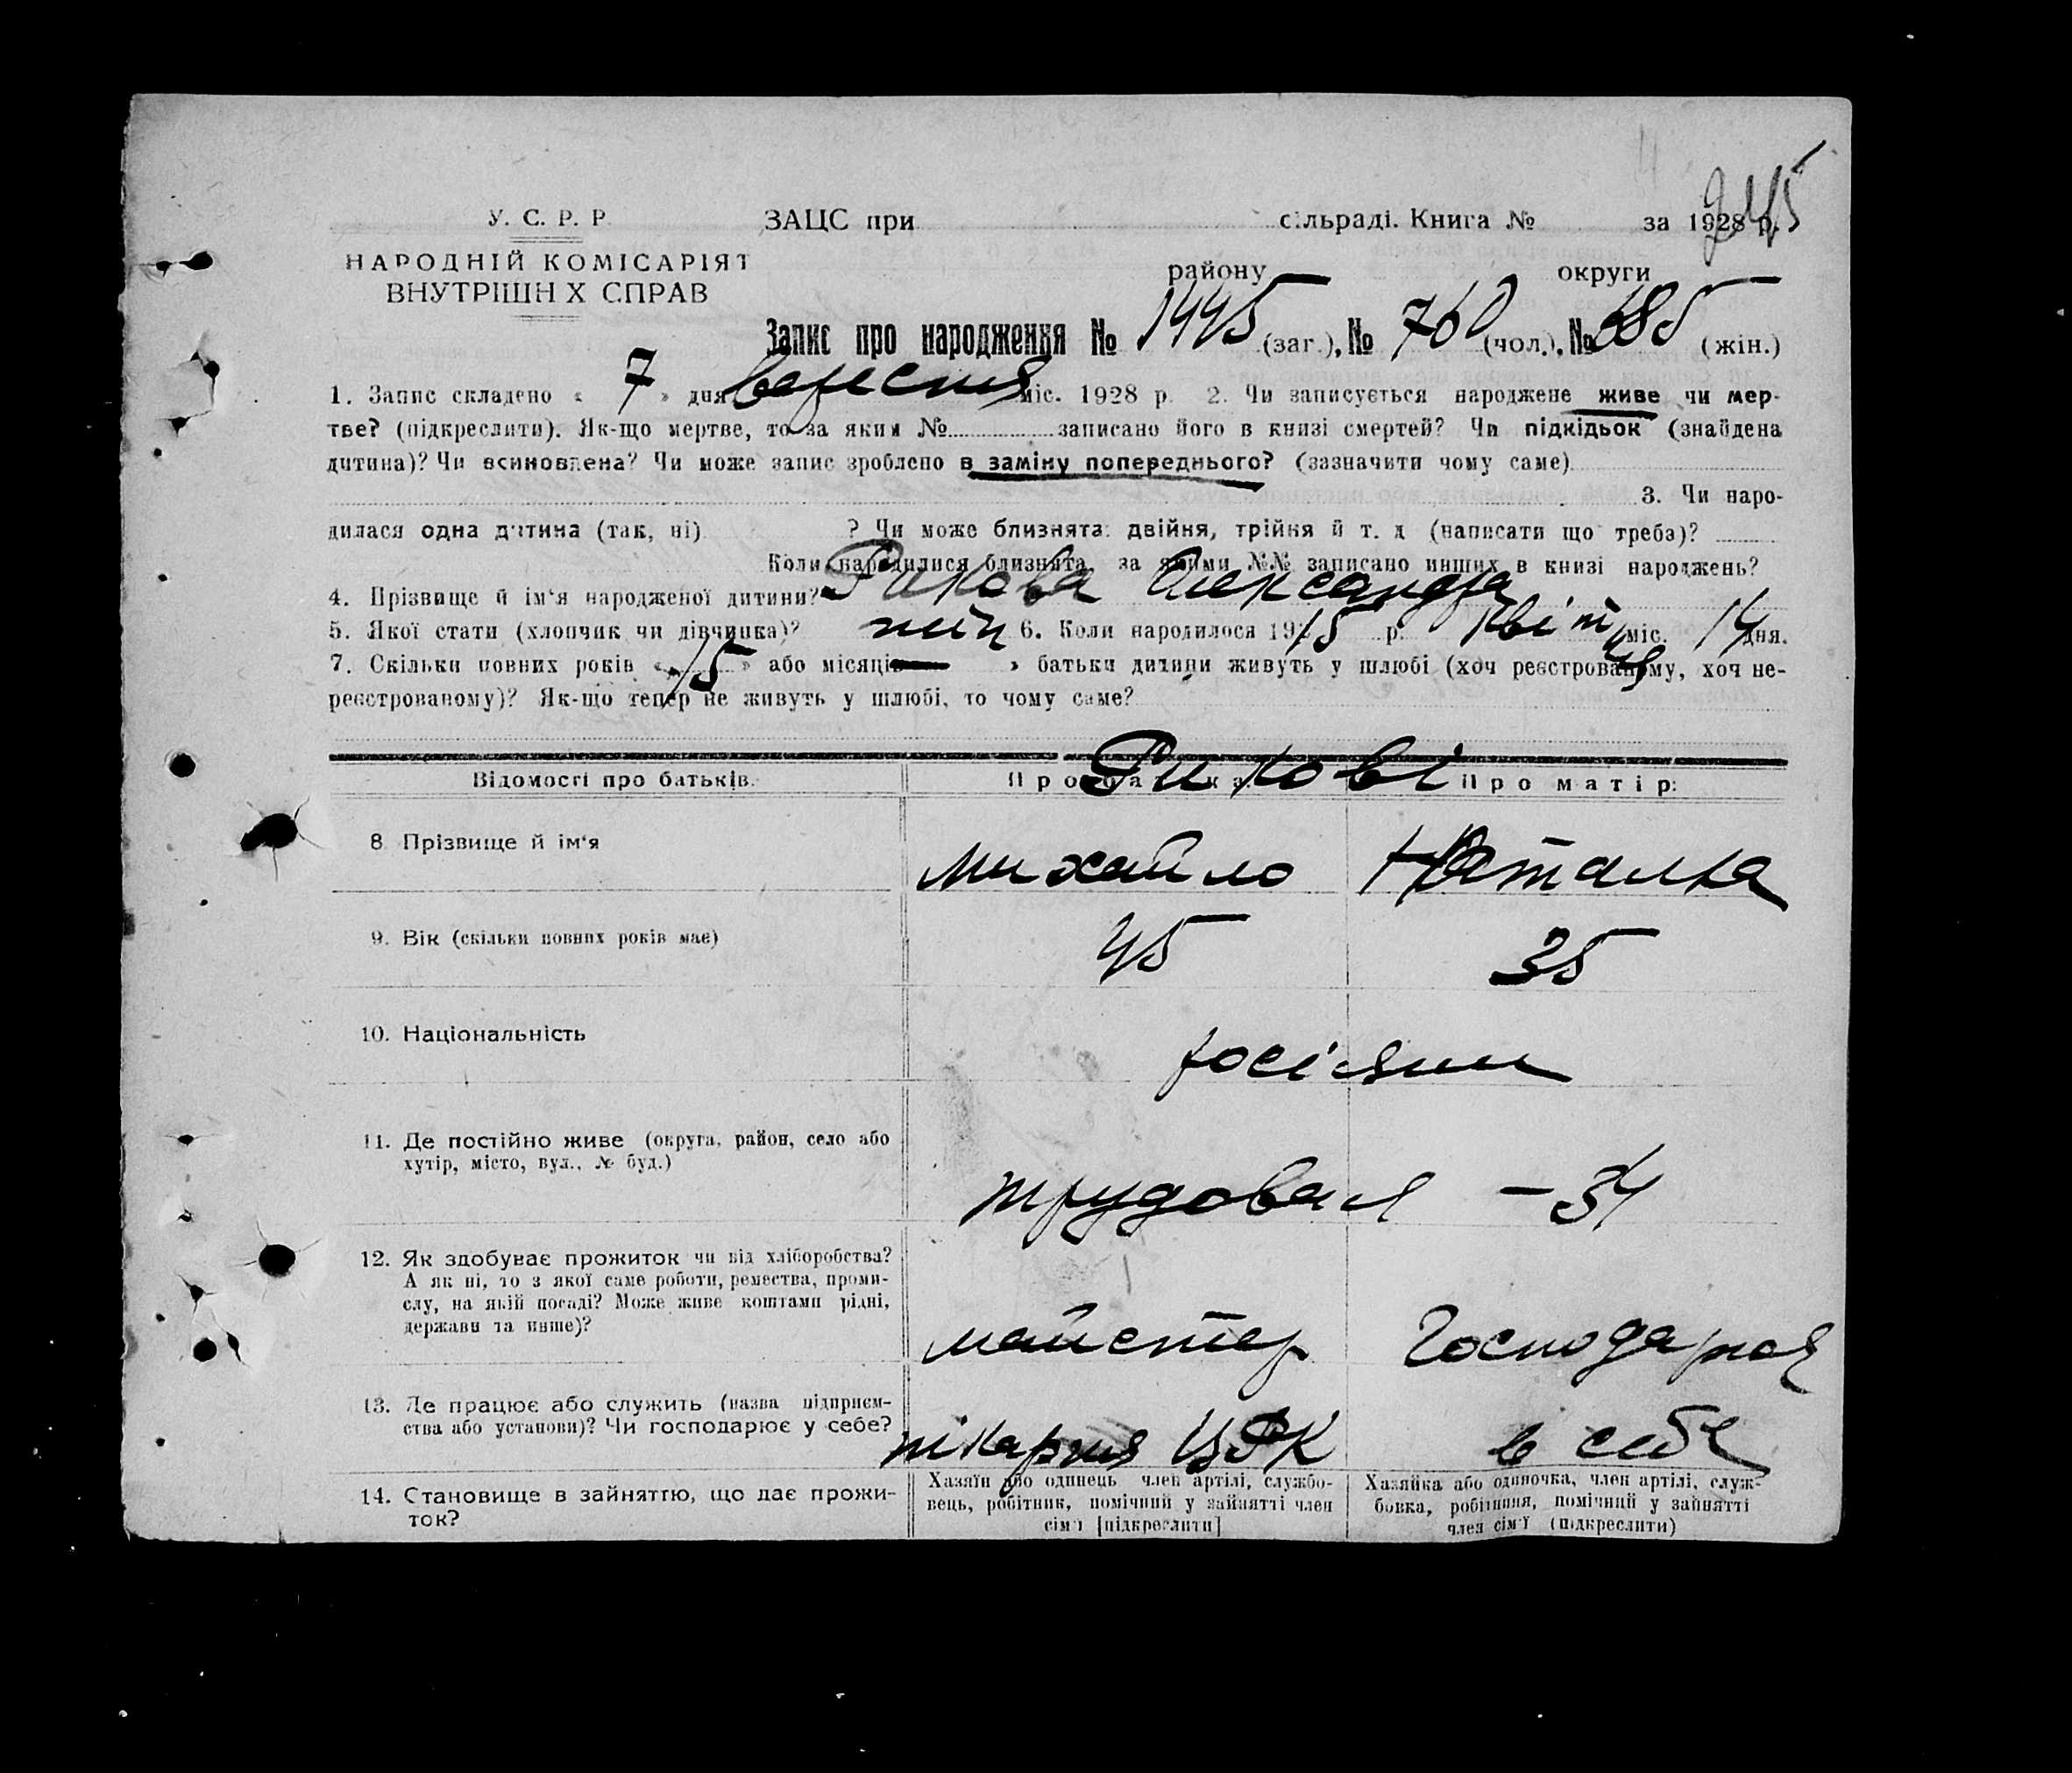 245
У. С. Р. Р. ЗАЦС при сільраді. Книга № за 1928 р.
НАРОДНІЙ КОМІСАРІЯТ району округи
ВНУТРІШН Х СПРАВ
Запис про народження № 1445 (заг.), № 760 (чол.), № 685 (жін.)
1. Запис складено « 7 » дня вересня міс. 1928 р. 2. Чи записується народжене живе чи мер-
тве? (підкреслити). Як-що мертве, то за яким № записано його в книзі смертей? Чи підкідьок (знайдена
дитина)? Чи всиновлена? Чи може запис зроблено в заміну попереднього? (зазначити чому саме)
3. Чи наро-
дилася одна дитина (так, ні) ? Чи може близнята: двійня, трійня й т. д (написати що треба)?
Коли народилися близнята, за якими №№ записано инших в книзі народжень?
4. Прізвище й ім'я народженої дитини? Рикова Александра
5. Якої стати (хлопчик чи дівчинка)? 6. Коли народилося 1915 р. квітня міс. 14 дня.
7. Скільки повних років « 15 » або місяців — » батьки дитини живуть у шлюбі (хоч реєстрованому, хоч не-
реєстрованому)? Як-що тепер не живуть у шлюбі, то чому саме?
Рикові
Відомості про батьків: Про батька: Про матір:
8 Прізвище й ім'я Михайло Наталка
9. Вік (скільки повних років має) 45 35
10. Національність росіяни
11. Де постійно живе (округа, район, село або
хутір, місто, вул., № буд.) Трудовая – 34
12. Як здобуває прожиток чи від хліборобства?
А як ні, то з якої саме роботи, ремества, проми-
слу, на якій посаді? Може живе коштами рідні,
держави та инше)? майстер Господарює
13. Де працює або служить (назва підприєм-
ства або установи)? Чи господарює у себе? пікарня ЦРК в себе
14. Становище в зайняттю, що дає прожи-
ток?
Хазяїн або одинець член артілі, службо-
вець, робітник, помічний у зайнятті член
сім'ї [підкреслити]
Хазяйка або одиночка, член артілі, служ-
бовка, робітниця, помічний у зайнятті
член сім'ї (підкреслити)